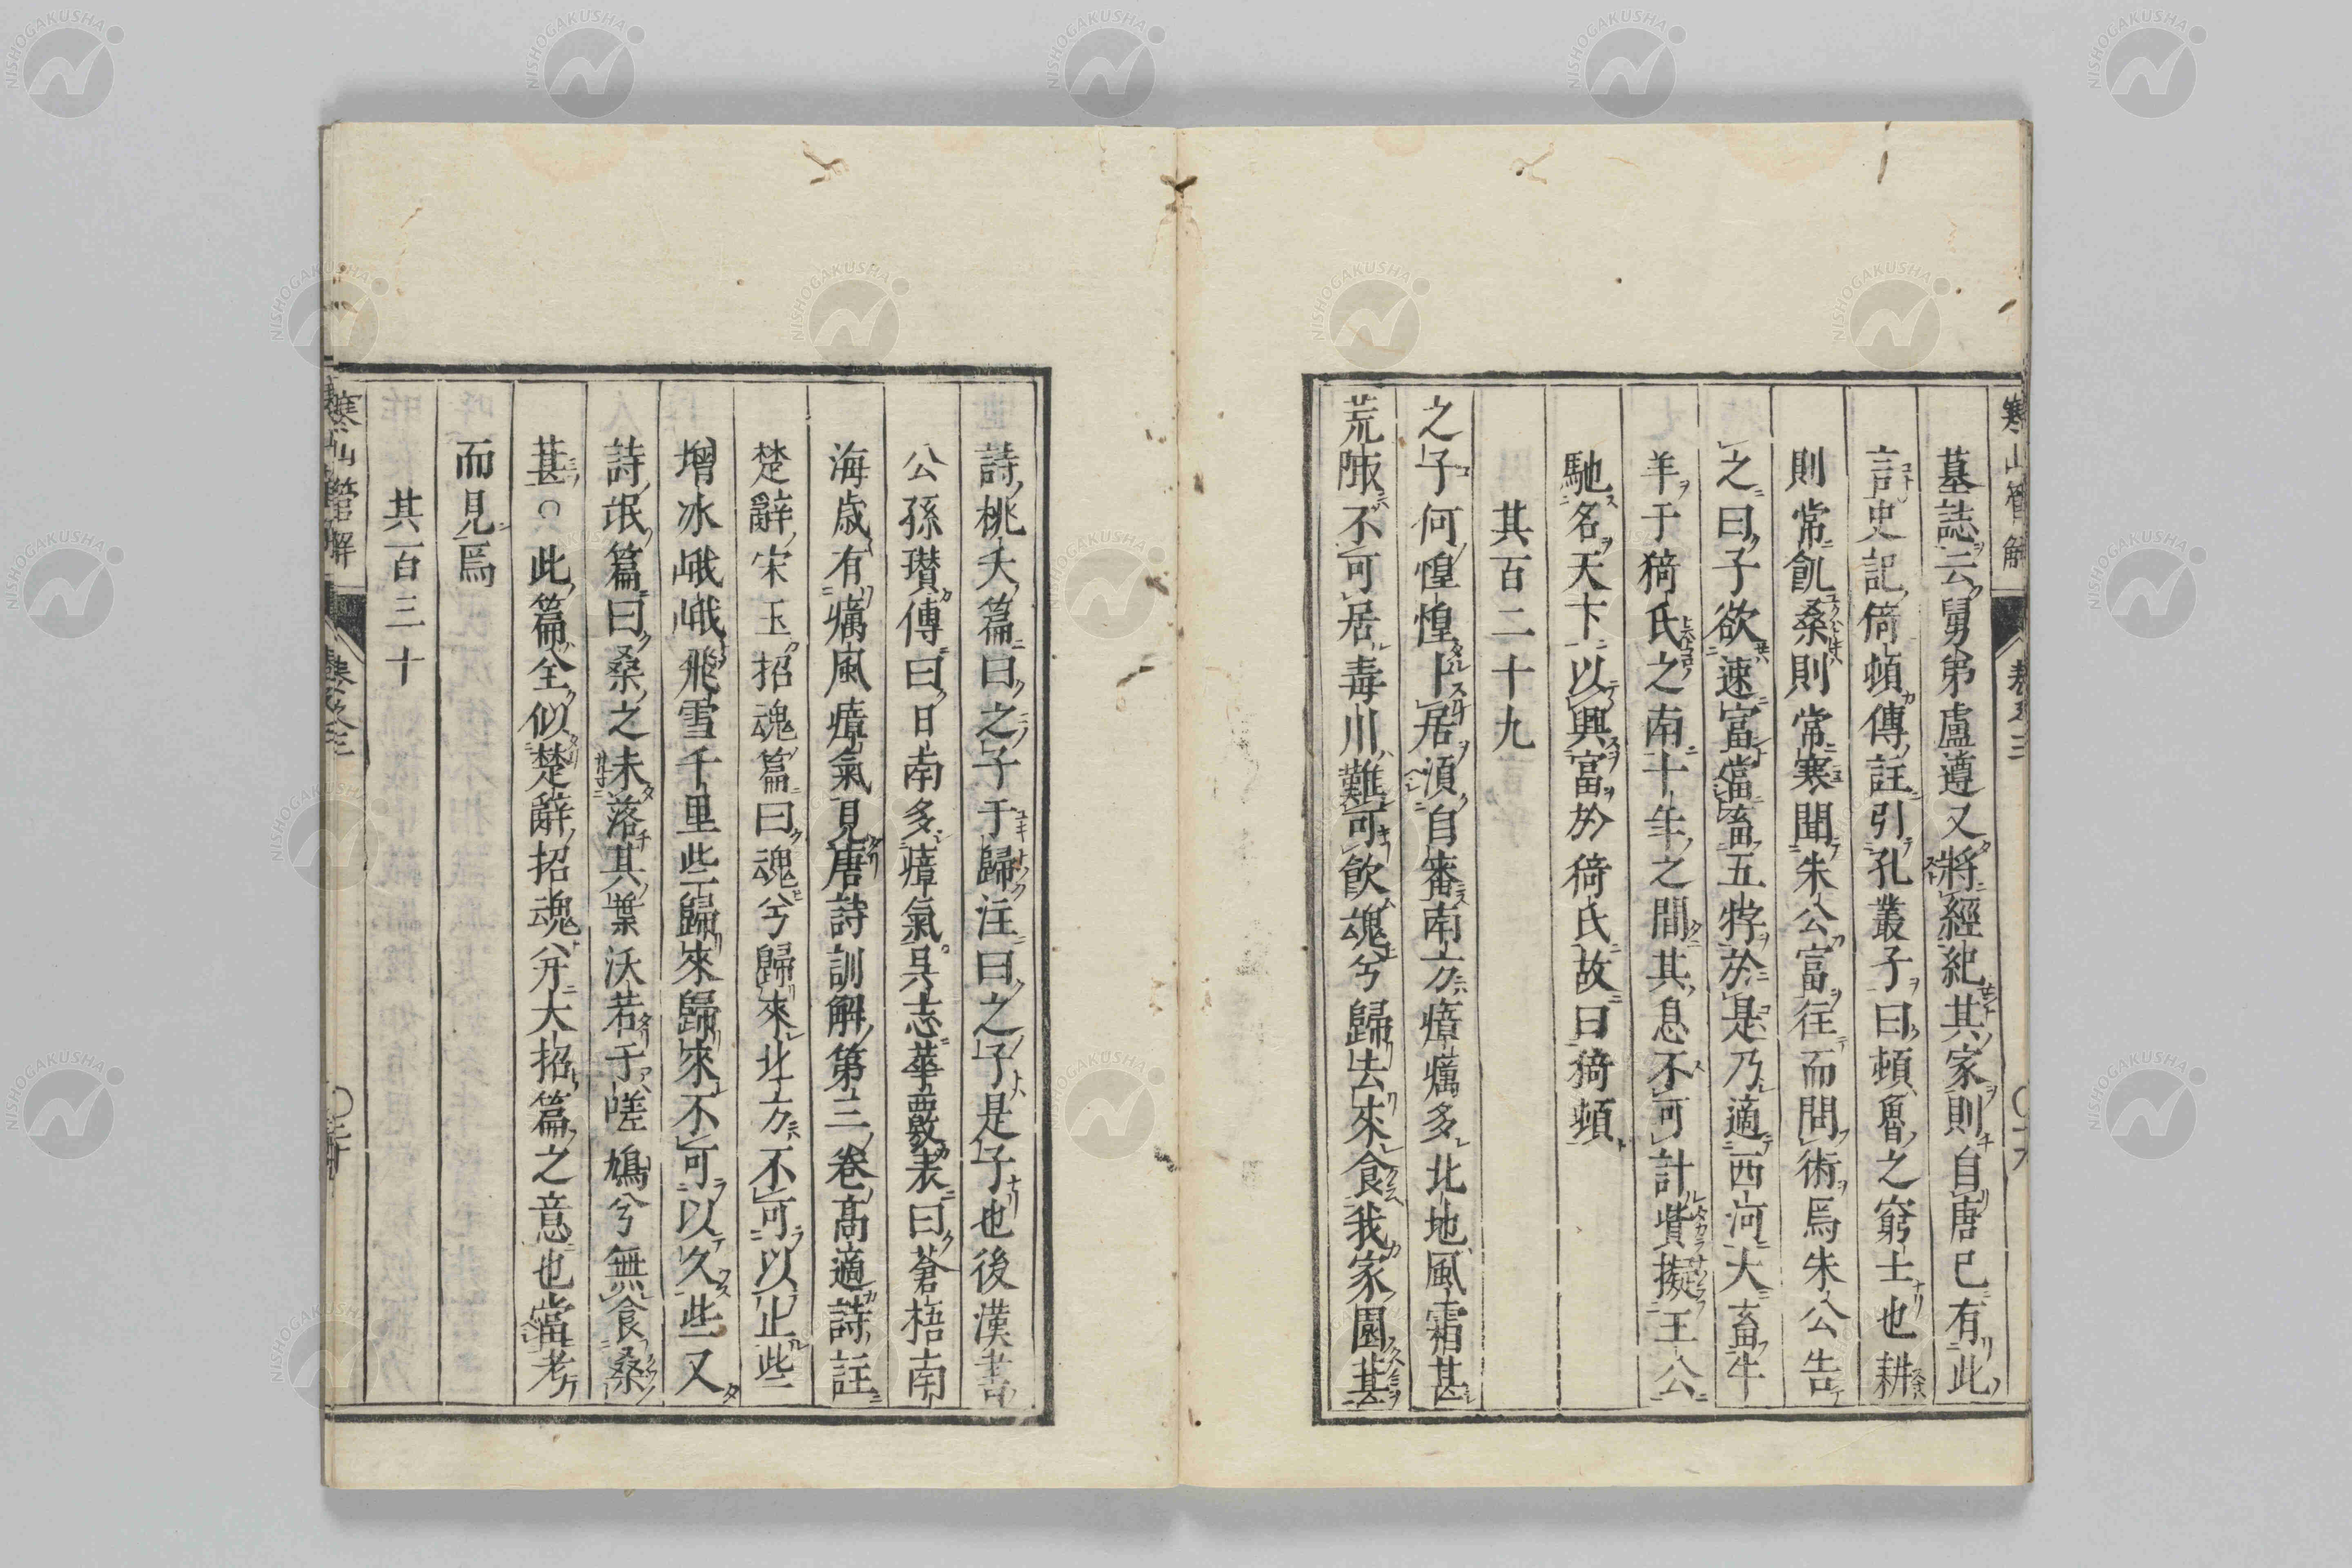 墓誌云舅弟盧遵又將經紀其家則自唐已有此
言史記倚頓傳註引孔叢子曰頓魯之窮士也耕
則常飢桑則常寒聞朱公富往而問術焉朱公告
之曰子欲速富當畜五牸於是乃適西河大畜牛
羊于猗氏之南十年之間其息不可計貲擬王公
馳名天下以興富於猗氏故曰猗頓
其百二十九
之子何惶惶卜居須自審南方瘴癘多北地風霜甚
荒陬不可居毒川難可飲魂兮歸去來食我家園葚
詩桃夭篇曰之子于歸注曰之子是子也後漢書
公孫瓚傳曰日南多瘴氣吳志華覈表曰蒼梧南
海歲有癘風瘴氣見唐詩訓解第三卷高適詩註
楚辭宋玉招魂篇曰魂兮歸來北方不可以止些
增冰峨峨飛雪千里些歸來歸來不可以久些又
詩氓篇曰桑之未落其葉沃若于嗟鳩兮無食桑
葚○此篇全似楚辭招魂并大招篇之意也當考
而見焉
其百三十
寒山管解
NISHOGAKUSHA